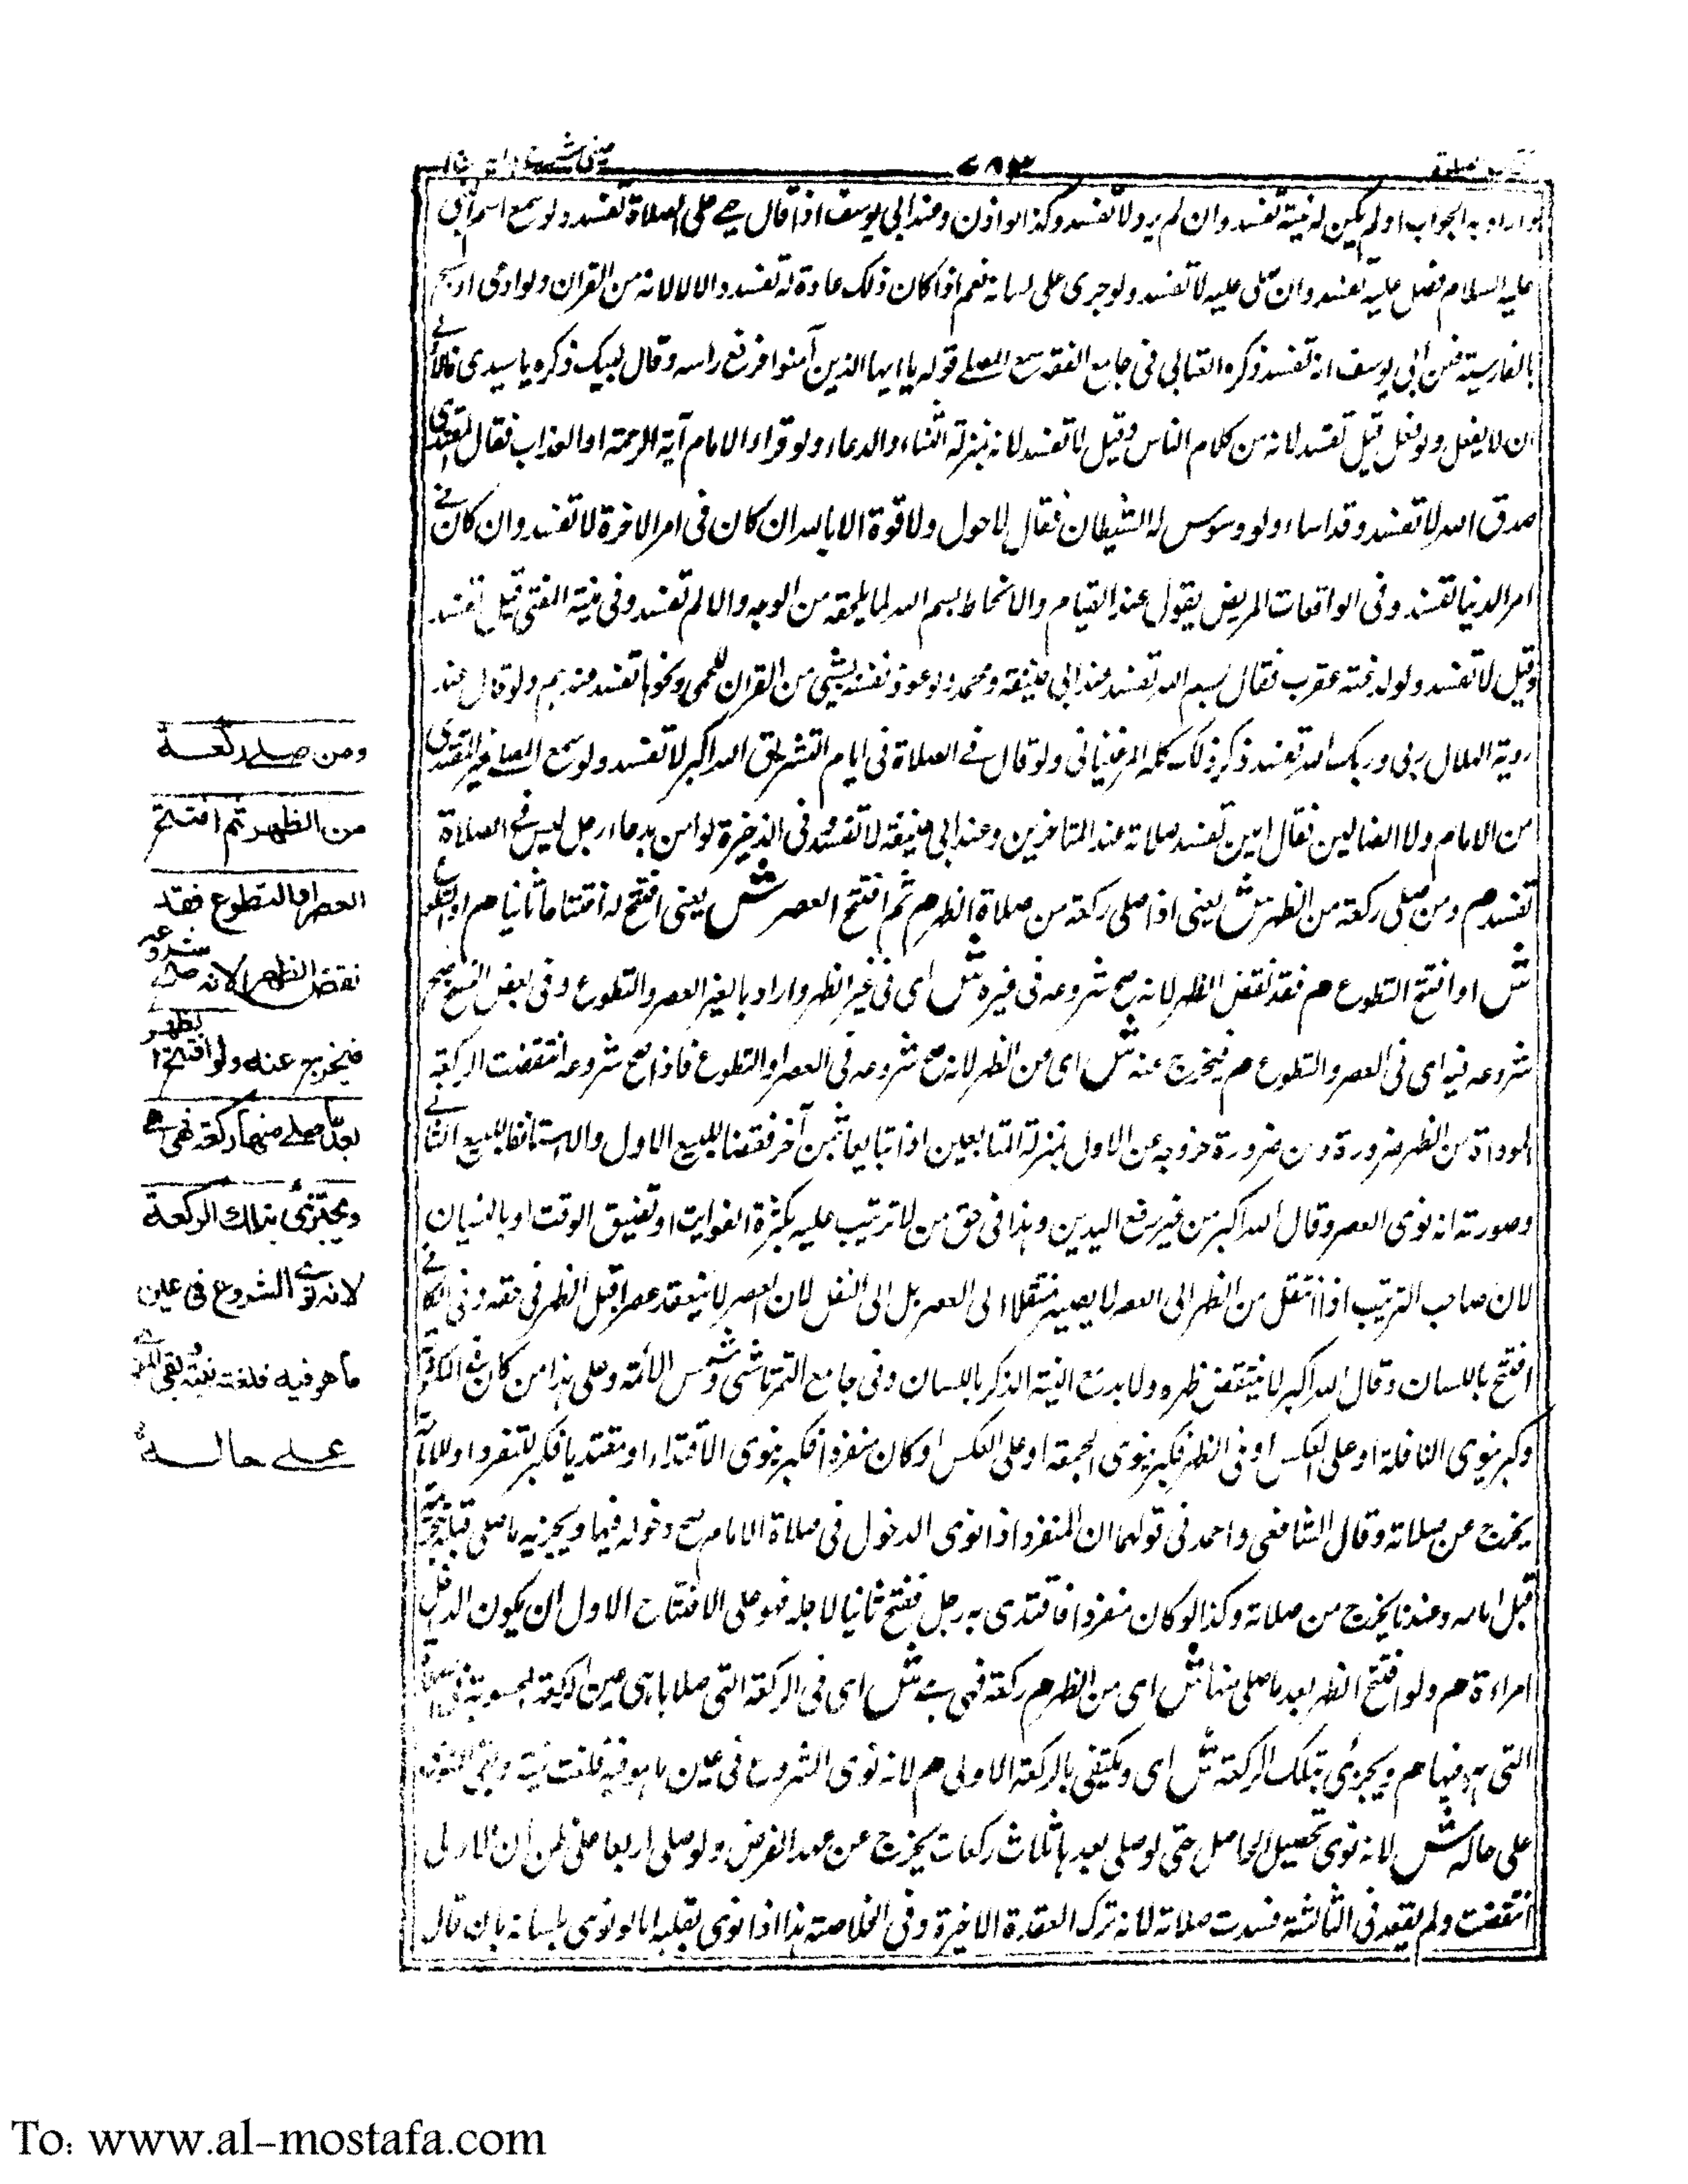 كتاب الصلوة
٧٨٣
عينى شرح هداية
لو اراد به الجواب او لم يكن له نية تفسد وان لم يرد لا تفسد وكذا لو اذن وعند ابى يوسف اذا قال حى على الصلاة تفسد ولو سمع اسم النبى
عليه السلام فصلى عليه تفسد وان صلى عليه لا تفسد ولو جرى على لسانه نعم اذا كان ذلك عادة له تفسد والا لا لانه من القران ولو دعى او سبح
بالفارسية فعن ابى يوسف انه تفسد ذكره العتابى فى جامع الفقه سمع المصلے قوله يا ايها الذين آمنوا فرفع راسه وقال لبيك ذكره يا سيدى فالاولے
ان لا يفعل ولو فعل قيل تفسد لانه من كلام الناس وقيل لا تفسد لانه بمنزلة الثناء والدعاء ولو قراء الامام آية الرحمة او العذاب فقال المقتدى
صدق الله لا تفسد وقد اساء ولو وسوس له الشيطان فقال لا حول ولا قوة الا بالله ان كان فى امر الاخرة لا تفسد وان كان فے
امر الدنيا تفسد وفى الواقعات المريض يقول عند القيام والانحطاط بسم الله لما يلحقه من الوجع والالم تفسد وفى منية المفتى قيل تفسد
وقيل لا تفسد ولو لدغته عقرب فقال بسم الله تفسد عند ابى حنيفة ومحمد ولو عوذ نفسه بشئ من القران للحمى ونحوها تفسد عندهم ولو قال عند
روية الهلال ربى وربك الله تفسد ذكر ذلك كله المرغينانى ولو قال فے الصلاة فى ايام التشريق الله اكبر لا تفسد ولو سمع المصلے غير المقتدى
من الامام ولا الضالين فقال امين تفسد صلاته عند المتاخرين وعند ابى حنيفة لا تفسد وفى الذخيرة لو امن بدعاء رجل ليس فے الصلاة
تفسد هم ومن صلى ركعة من الظهر ش يعنى اذا صلى ركعة من صلاة الظهر هم ثم افتتح العصر ش يعنى افتتح له افتتاحا ثانيا هم او التطوع
ش او افتتح التطوع هم فقد نقض الظهر لانه صح شروعه فى غيره ش اى فى غير الظهر واراد بالغير العصر والتطوع وفى بعض النسخ صح
شروعه فيه اى فى العصر والتطوع هم فيخرج عنه ش اى من الظهر لانه صح شروعه فى العصر او التطوع فاذا صح شروعه انتقضت الركعة
الموداة من الظهر ضرورة ومن ضرورة خروجه عن الاول بمنزلة المتبايعين اذا تبايعا بثمن آخر فقضا للبيع الاول والاستانفا للبيع الثانے
وصورته انه نوى العصر وقال الله اكبر من غير رفع اليدين وهذا فى حق من لا ترتيب عليه بكثرة الفوايت او تضيق الوقت او بالنسيان
لان صاحب الترتيب اذا انتقل من الظهر الى العصر لا يصير منتقلا الى العصر بل الى النفل لان العصر لا ينعقد عصرا قبل الظهر فى حقه وفى الكافے
افتتح باللسان وقال الله اكبر لا ينتقض ظهره ولا بد مع النية الذكر باللسان وفى جامع التمرتاشى وشمس الائمة وعلى هذا من كان فے المكتوبة
وكبر ينوى النافلة او على العكس او فى الظهر فكبر ينوى الجمعة او على العكس او كان منفردا فكبر ينوى الاقتداء او مقتديا فكبر للتفرد او للامامة
يخرج عن صلاته وقال الشافعى واحمد فى قولهما ان المنفرد اذا نوى الدخول فى صلاة الامام صح دخوله فيها ويجزيه ما صلى قبله بتحريمة
قبل امامه وعندنا يخرج من صلاته وكذا لو كان منفردا فاقتدى به رجل ففتح ثانيا لاجله فهو على الافتتاح الاول ان يكون الداخل
امراءة هم ولو افتتح الظهر بعد ما صلى منها ش اى من الظهر هم ركعة فهى هے ش اى فى الركعة التى صلاها هى عين الركعة المحسوبة فى
التى هو فيها هم ويجزئ بتلك الركعة ش اى ويكتفى بالركعة الاولى هم لانه نوى الشروع فى عين ما هو فيه فلغت نيته وبقى المنوى
على حاله ش لانه نوى تحصيل الحاصل حتى لو صلى بعدها ثلاث ركعات يخرج عن عهد الفرض ولو صلى اربعا على ظن ان الاولى
انتقضت ولم يقعد فى الثالثة فسدت صلاته لانه ترك القعدة الاخيرة وفى الخلاصة هذا اذا نوى بقلبه اما لو نوى بلسانه بان قال
ومن صلے ركعة
من الظهر ثم افتتح
العصر او التطوع فقد
نقض الظهر لانه صح شروعه
فيخرج عنه ولو افتتح الظهر
بعد ما صلے منها ركعة فهى هے
ويجتزئ بتلك الركعة
لانه نوے الشروع فى عين
ما هو فيه فلغت نيته وبقى المنوے
علے حاله
To: www.al-mostafa.com